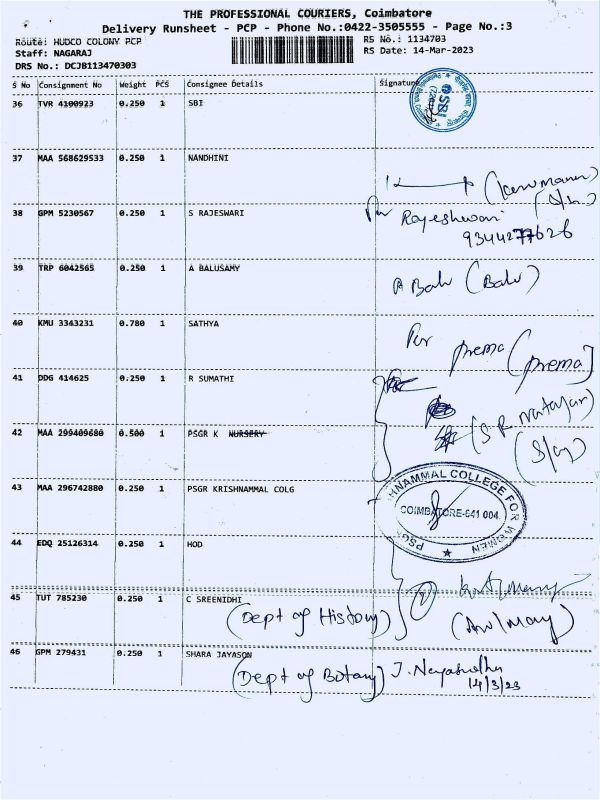 THE PROFESSIONAL COURIERS, Coimbatore
Delivery Runsheet - PCP - Phone No.:0422-3505555 - Page No.:3
Route: HUDCO COLONY PCP RS No.: 1134703
Staff: NAGARAJ RS Date: 14-Mar-2023
DRS No.: DCJB113470303
S No Consignment No Weight PCS Consignee Details Signature
36 TVR 4100923 0.250 1 SBI
SBI
37 MAA 568629533 0.250 1 NANDHINI
38 GPM 5230567 0.250 1 S RAJESWARI
Rajeshwari
9344277626
39 TRP 6042565 0.250 1 A BALUSAMY
A Balu (Balu)
40 KMU 3343231 0.780 1 SATHYA
prema (prema)
41 DDG 414625 0.250 1 R SUMATHI
42 MAA 299409680 0.500 1 PSGR K NURSERY
43 MAA 296742880 0.250 1 PSGR KRISHNAMMAL COLG
HNAMMAL COLLEGE FOR WOMEN
COIMBATORE-641 004.
PSGR
44 EDQ 25126314 0.250 1 HOD
45 TUT 785230 0.250 1 C SREENIDHI
(Dept of History)
46 GPM 279431 0.250 1 SHARA JAYASON
(Dept of Botany)
14/3/23